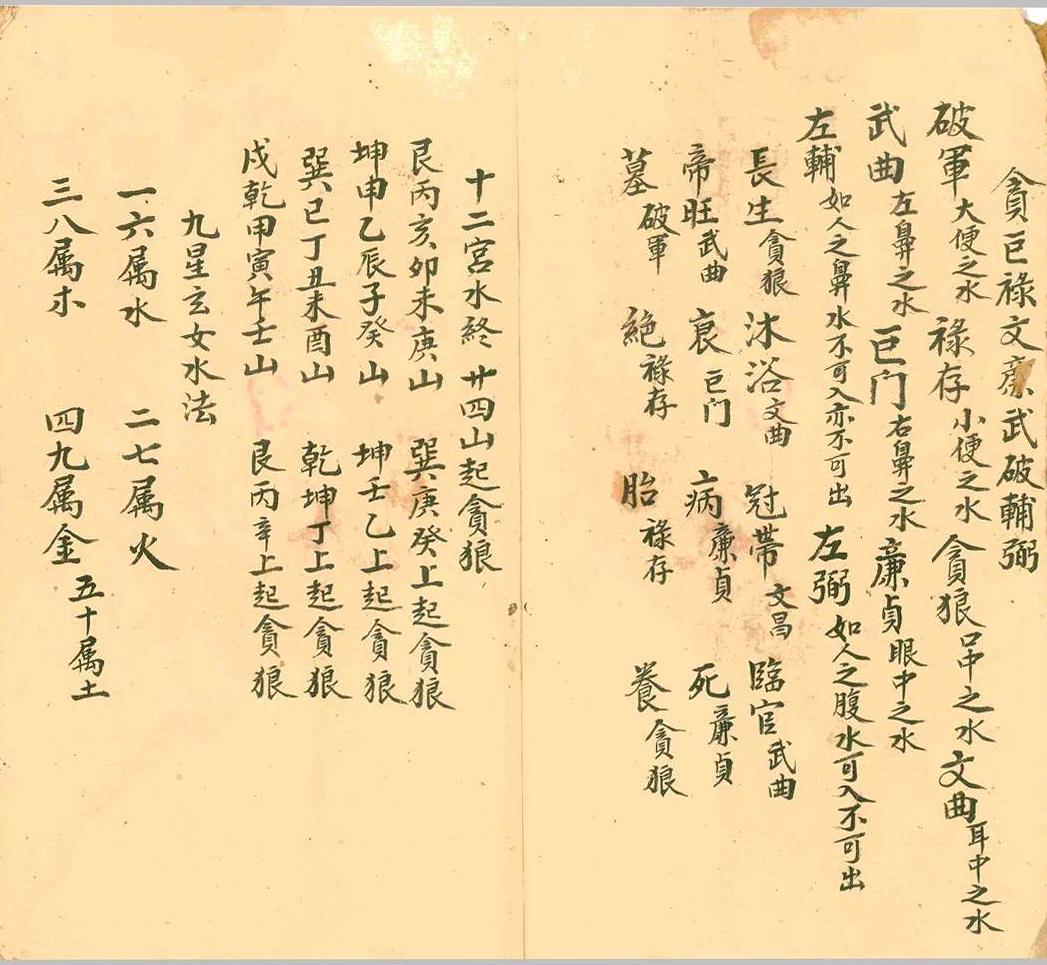 貪巨祿文廉武破輔弼
破軍大便之水 祿存小便之水 貪狼口中之水 文曲耳中之水
武曲左鼻之水 巨门右鼻之水 廉貞眼中之水
左輔如人之鼻水不可入亦不可出 左弼如人之腹水可入不可出
長生貪狼 沐浴文曲 冠帶文昌 臨官武曲
帝旺武曲 衰巨门 病廉貞 死廉貞
墓破軍 絕祿存 胎祿存 養貪狼
十二宮水終廿四山起貪狼
艮丙亥卯未庚山 巽庚癸上起貪狼
坤申乙辰子癸山 坤壬乙上起貪狼
巽巳丁丑未酉山 乾坤丁上起貪狼
戌乾甲寅午壬山 艮丙辛上起貪狼
九星玄女水法
一六属水 二七属火
三八属木 四九属金 五十属土